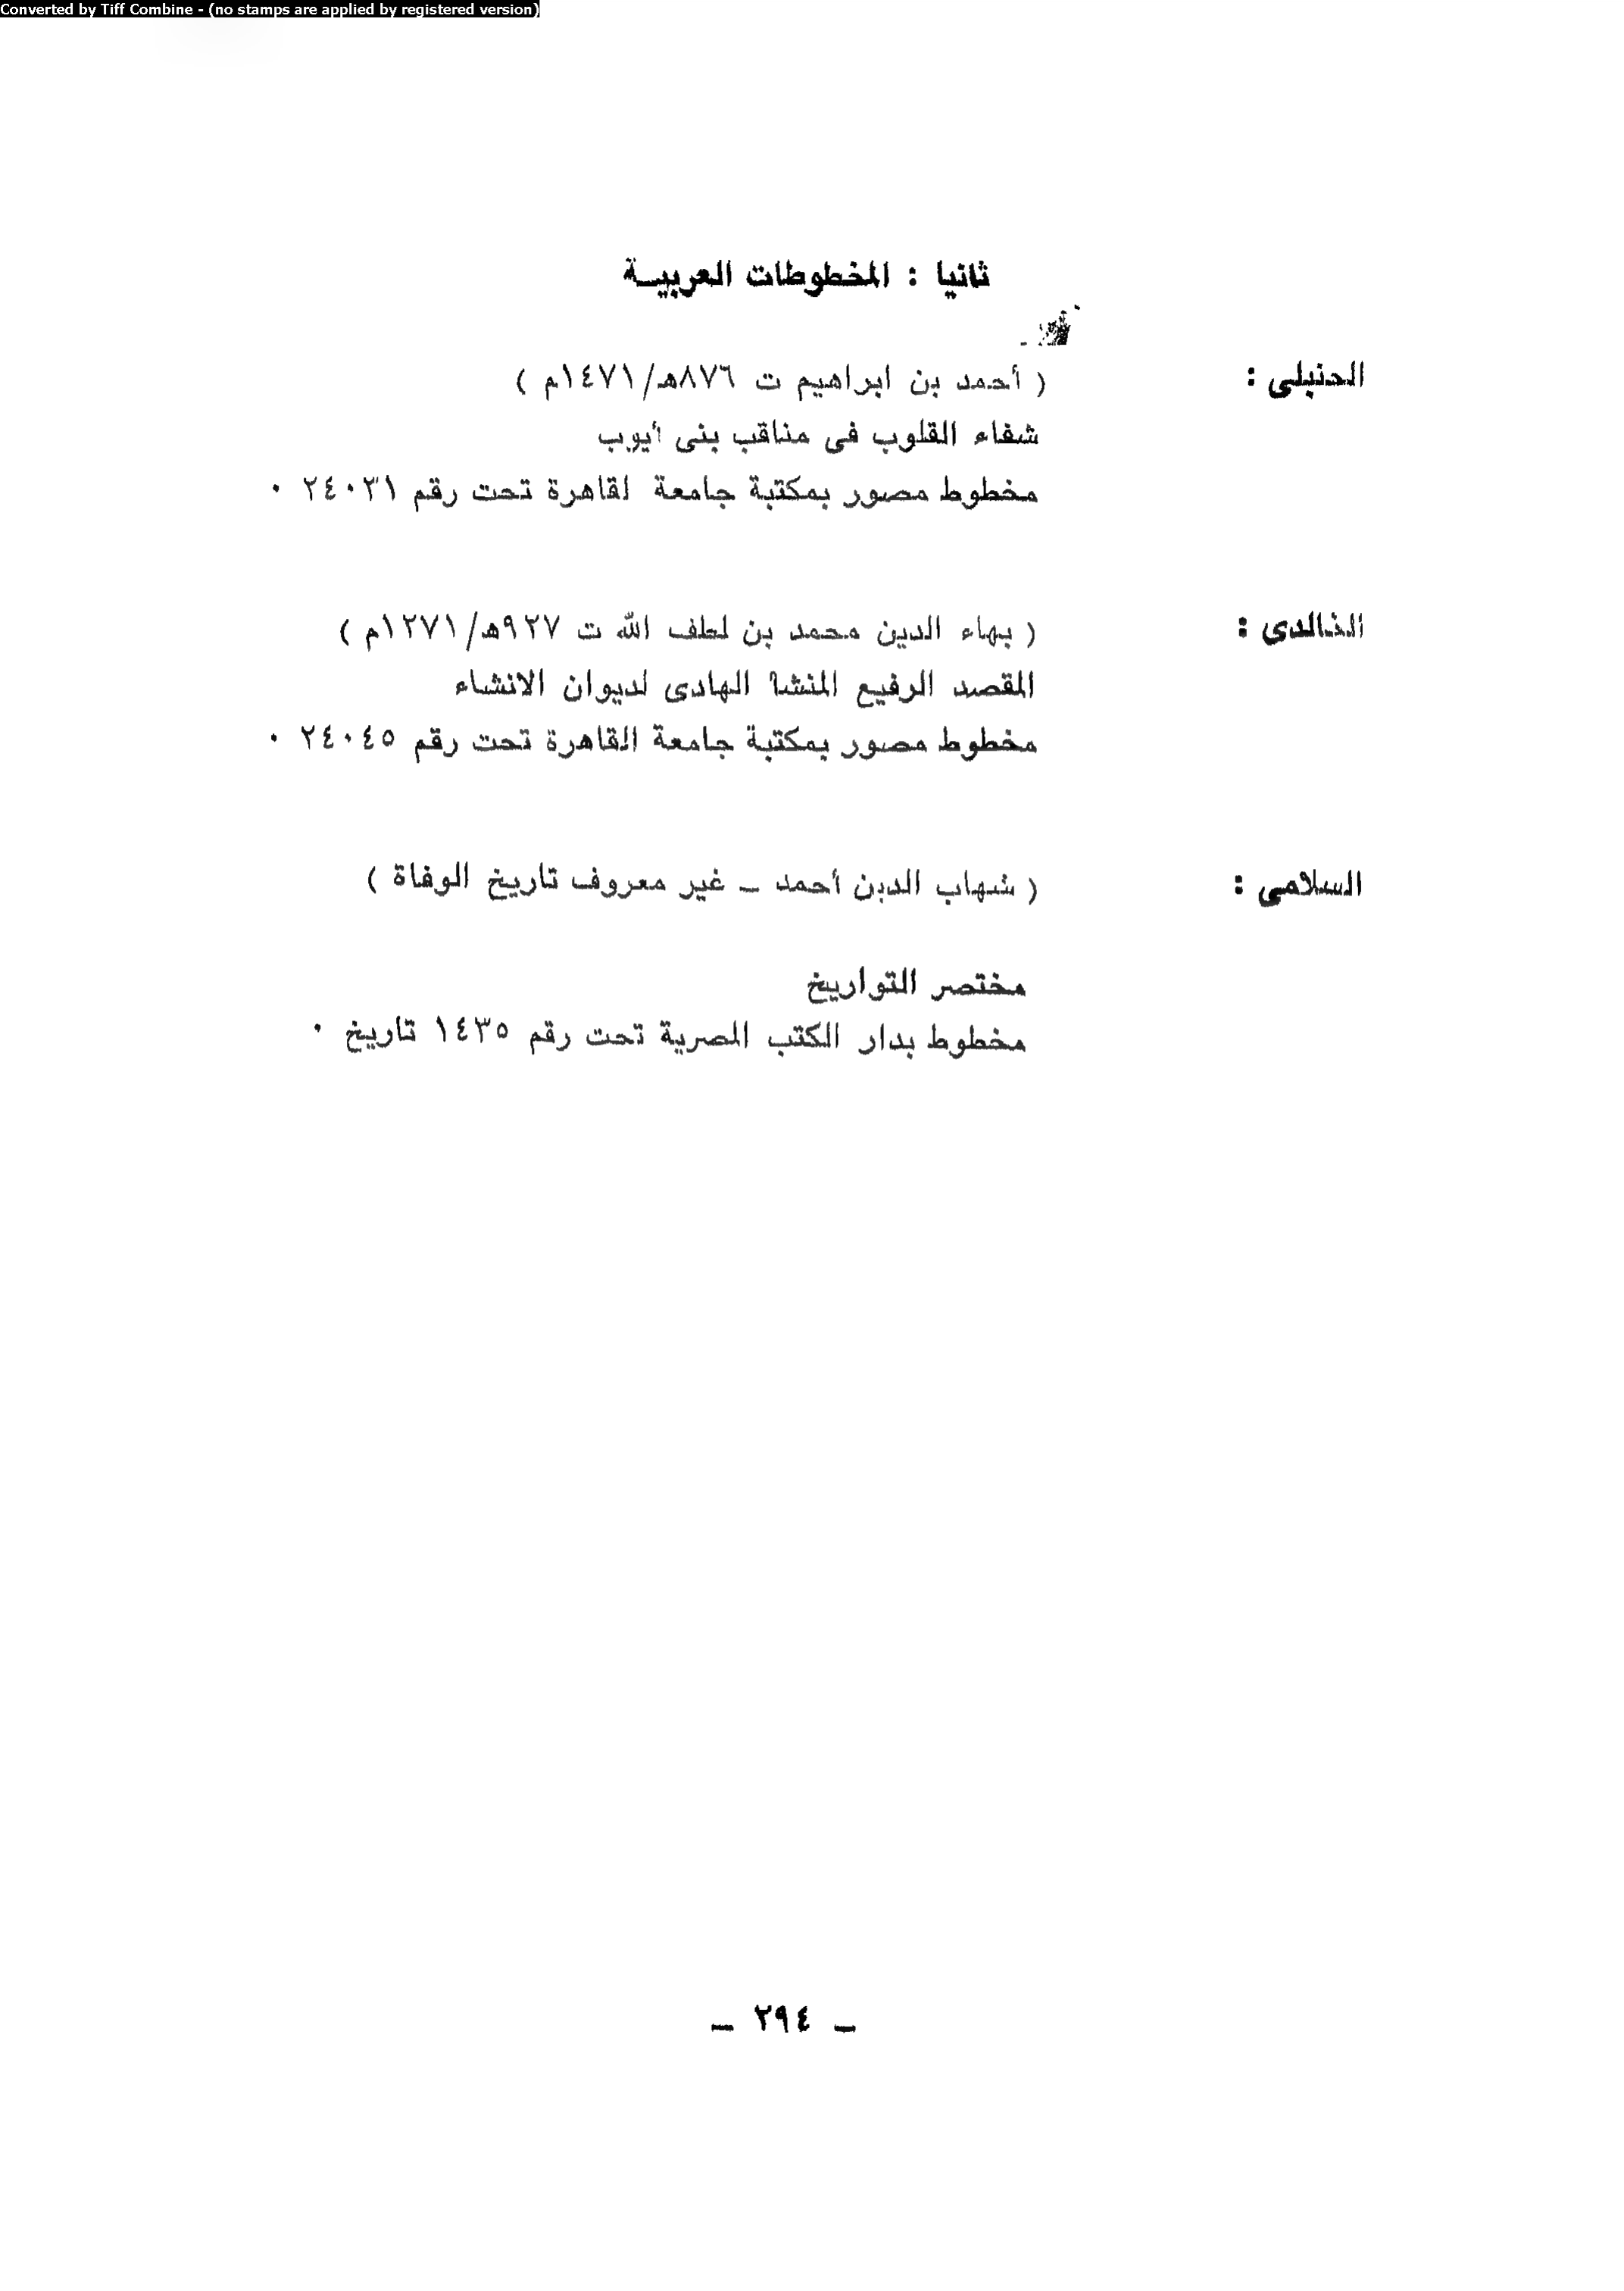 Converted by Tiff Combine - (no stamps are applied by registered version)
ثانيا : المخطوطات العربيـــة
الحنبلى : ( أحمد بن ابراهيم ت ٨٧٦هـ/١٤٧١م )
شفاء القلوب فى مناقب بنى أيوب
مخطوط مصور بمكتبة جامعة لقاهرة تحت رقم ٢٤٠٣١ ٠
الخالدى : ( بهاء الدين محمد بن لطف الله ت ٩٢٧هـ/١٢٧١م )
المقصد الرفيع المنشا الهادى لديوان الانشاء
مخطوط مصور بمكتبة جامعة القاهرة تحت رقم ٢٤٠٤٥ ٠
السلامى : ( شهاب الدين أحمد ــ غير معروف تاريخ الوفاة )
مختصر التواريخ
مخطوط بدار الكتب المصرية تحت رقم ١٤٣٥ تاريخ ٠
ــ ٢٩٤ ــ